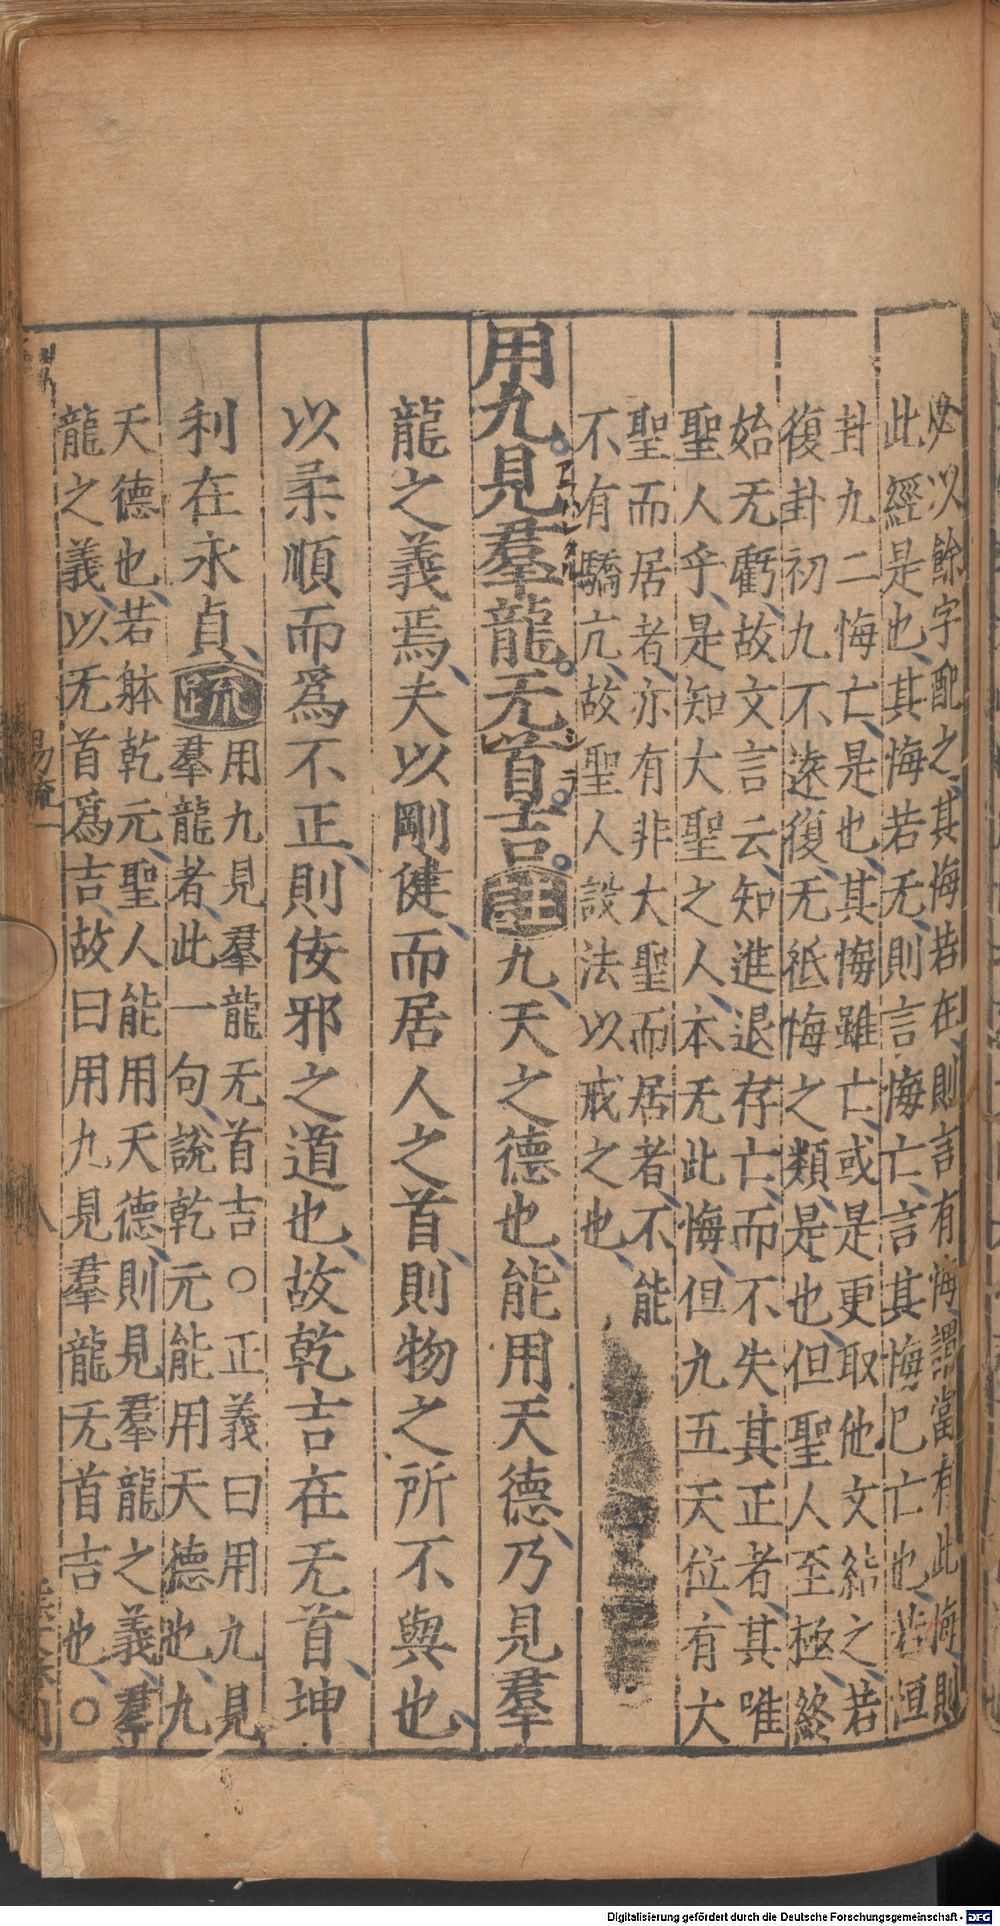 必以餘字配之其悔若在則言有悔謂當有此悔則
此經是也其悔若无則言悔亡言其悔已亡也若恒
卦九二悔亡是也其悔雖亡或是更取他文結之若
復卦初九不遠復无祗悔之類是也但聖人至極終
始无虧故文言云知進退存亡而不失其正者其唯
聖人乎是知大聖之人本无此悔但九五天位有大
聖而居者亦有非大聖而居者不能
不有驕亢故聖人設法以戒之也
用九見羣龍无首吉註九天之德也能用天德乃見羣
龍之義焉夫以剛健而居人之首則物之所不與也
以柔順而爲不正則佞邪之道也故乾吉在无首坤
利在永貞疏
用九見羣龍无首吉○正義曰用九見
羣龍者此一句說乾元能用天德也九
天德也若躰乾元聖人能用天德則見羣龍之義羣
龍之義以无首爲吉故曰用九見羣龍无首吉也○
易疏一
八
Digitalisierung gefördert durch die Deutsche Forschungsgemeinschaft - DFG